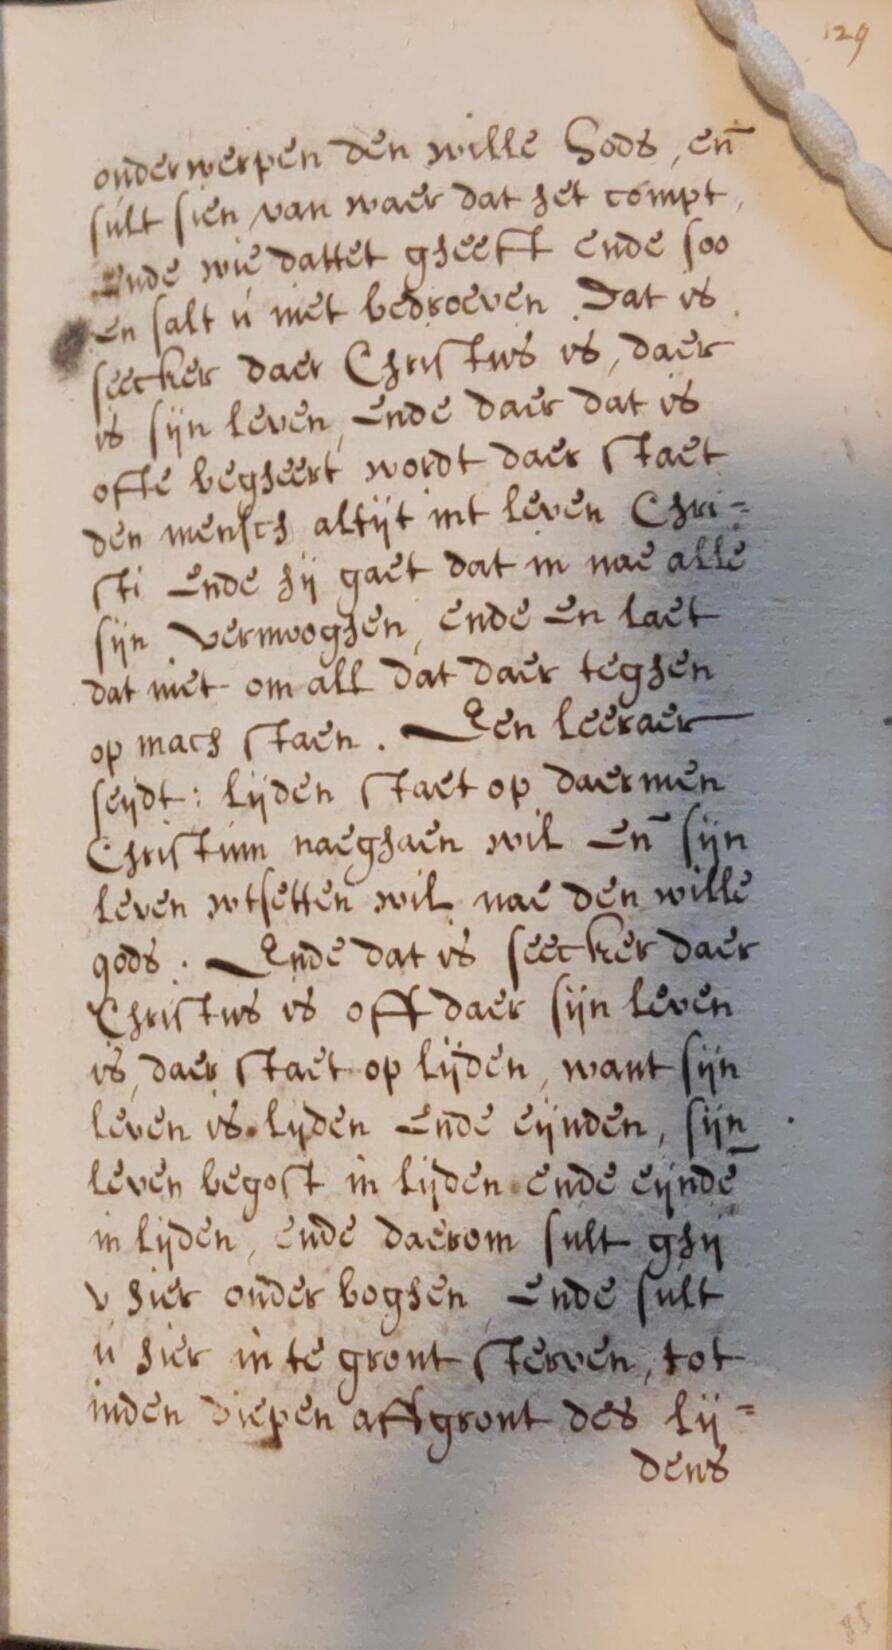 129
onderwerpen den wille Gods, en̄
sult sien van waer dat het compt,
Ende wie dattet gheeft ende soo
En salt u niet bedroeven. Dat is
seecker daer Christus is, daer
is sijn leven, Ende daer dat is
ofte begheert wordt daer staet
den mensch altijt int leven Chri=
sti Ende hij gaet dat in nae alle
sijn vermooghen, ende En laet
dat niet om all dat daer teghen
op mach staen. Een leeraer
seijdt: lijden staet op daermen
Christum naeghaen wil En̄ sijn
leven wtsetten wil nae den wille
gods. Ende dat is seecker daer
Christus is off daer sijn leven
is, daer staet op lijden, want sijn
leven is lijden Ende eijnden, sijn
leven begost in lijden ende eijndē
in lijden, ende daerom sult ghij
v hier onder boghen, Ende sult
u hier in te gront sterven, tot
inden diepen affgront des lij=
dens
85